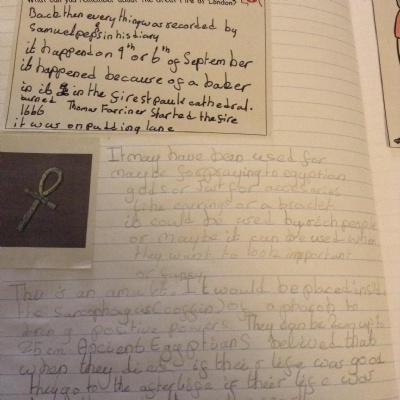 What can you remember about the Great Fire of London?
Back then everything was recorded by
Samuel pepsin his diary
it happend on 9th or 6th of September
it happened because of a baker
in it in the fire st pauls cathedral.
burned Thomas Farriner Started the fire
1666
it was on pudding lane
It may have been used for
maybe for praying to egyptian
gods or just for accessories
like earrings or a braclet
it could be used by rich people
or maybe it can be used when
they want to look important
or fancy
This is an amulet. It would be placed inside
the sarcophagus (coffin) of a pharoh to
bring positive powers. They can be long up to
25cm Ancient Egyptians belived that
when they died if their life was good
they go to the afterlife if their life was